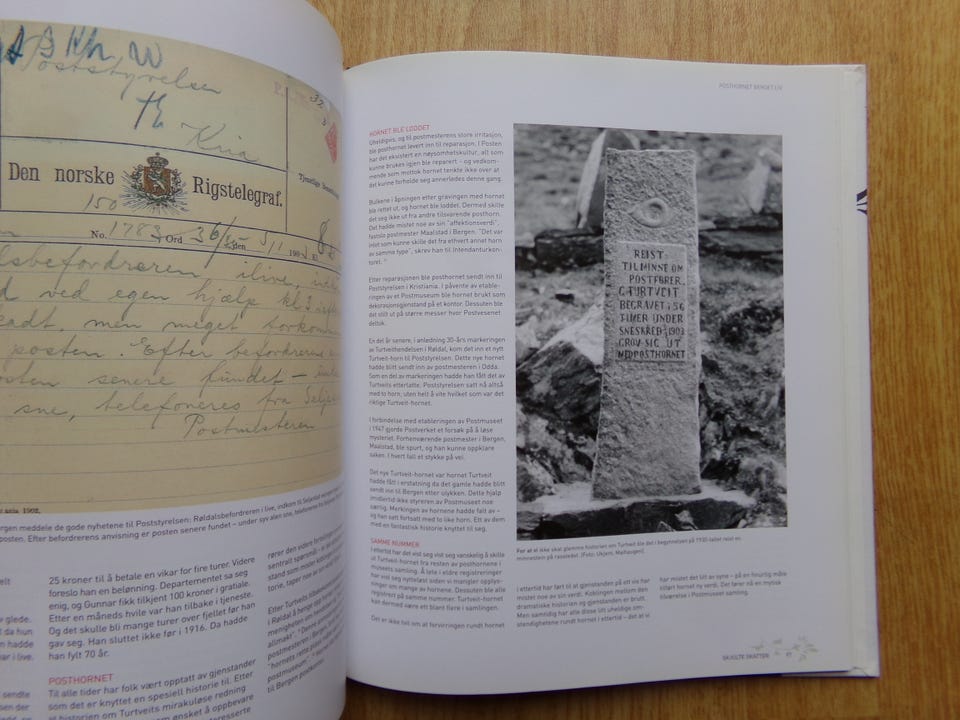 Poststyrelsen
Kria
Den norske Rigstelegraf.
No. 1783. Ord 36
ilsbefordreren ilive, in
d ved egen hjælp kl 3
tadt, men meget
posten. Efter befordrerens
osten senere fundet –
sne, telefoneres fra Selje
Postmesteren
ania. 1902.
rgen meddele de gode nyhetene til Poststyrelsen: Røldalsbefordreren i live, vidkom til Seljestad
posten. Efter befordrerens anvisning er posten senere fundet – under syv alen sne, telefoneres fra
25 kroner til å betale en vikar for fire turer. Videre
foreslo han en belønning. Departementet sa seg
enig, og Gunnar fikk tilkjent 100 kroner i gratiale.
Etter en måneds hvile var han tilbake i tjeneste.
Og det skulle bli mange turer over fjellet før han
gav seg. Han sluttet ikke før i 1916. Da hadde
han fylt 70 år.
POSTHORNET
Til alle tider har folk vært opptatt av gjenstander
som det er knyttet en spesiell historie til. Etter
at historien om Turtveits mirakuløse redning
som ønsket å oppbevare
POSTHORNET BERGET LIV
HORNET BLE LODDET
Uheldigvis, og til postmesterens store irritasjon,
ble posthornet levert inn til reparasjon. I Posten
har det eksistert en nøysomhetskultur, alt som
kunne brukes igjen ble reparert – og vedkom-
mende som mottok hornet tenkte ikke over at
det kunne forholde seg annerledes denne gang.
Bulkene i åpningen etter gravingen med hornet
ble rettet ut, og hornet ble loddet. Dermed skilte
det seg ikke ut fra andre tilsvarende posthorn.
Det hadde mistet noe av sin "affektionsverdi",
fastslo postmester Maalstad i Bergen. "Det var
intet som kunde skille det fra ethvert annet horn
av samme type", skrev han til Intendanturkon-
toret.
Etter reparasjonen ble posthornet sendt inn til
Poststyrelsen i Kristiania. I påvente av etable-
ringen av et Postmuseum ble hornet brukt som
dekorasjonsgjenstand på et kontor. Dessuten ble
det stilt ut på større messer hvor Postvesenet
deltok.
En del år senere, i anledning 30-års markeringen
av Turtveithendelsen i Røldal, kom det inn et nytt
Turtveit-horn til Poststyrelsen. Dette nye hornet
hadde blitt sendt inn av postmesteren i Odda.
Som en del av markeringen hadde han fått det av
Turtveits etterlatte. Poststyrelsen satt nå altså
med to horn, uten helt å vite hvilket som var det
riktige Turtveit-hornet.
I forbindelse med etableringen av Postmuseet
i 1947 gjorde Postverket et forsøk på å løse
mysteriet. Forhenværende postmester i Bergen,
Maalstad, ble spurt, og han kunne oppklare
saken. I hvert fall et stykke på vei.
Det nye Turtveit-hornet var hornet Turtveit
hadde fått i erstatning da det gamle hadde blitt
sendt inn til Bergen etter ulykken. Dette hjalp
imidlertid ikke styreren av Postmuseet noe
særlig. Merkingen av hornene hadde falt av –
og han satt fortsatt med to like horn. Ett av dem
med en fantastisk historie knyttet til seg.
SAMME NUMMER
I ettertid har det vist seg vanskelig å skille
ut Turtveit-hornet fra resten av posthornene i
museets samling. Å lete i eldre registreringer
har vist seg nytteløst siden vi mangler opplys-
ninger om mange av hornene. Dessuten ble alle
registrert på samme nummer. Turtveit-hornet
kan dermed være et blant flere i samlingen.
Det er ikke til at forvirringen rundt hornet
REIST
TIL MINNE OM
POSTFØRER.
G.TURTVEIT
BEGRAVET 56
TIMER UNDER
SNESKRED 1903
GROV SIG UT
MEDPOSTHORNET
For at vi ikke skal glemme historien om Turtveit ble det i begynnelsen på 1930-tallet reist en
minnestein på rasstedet. (Foto: Ukjent, Maihaugen).
i ettertid har ført til at gjenstanden på ett vis har
mistet noe av sin verdi. Koblingen mellom den
dramatiske historien og gjenstanden er brutt.
Men samtidig har alle disse litt uheldige om-
stendighetene rundt hornet i ettertid – det at vi
har mistet det litt av syne – på en finurlig måte
tilført hornet ny verdi. Det fører nå en mystisk
tilværelse i Postmuseet samling.
SKJULTE SKATTER